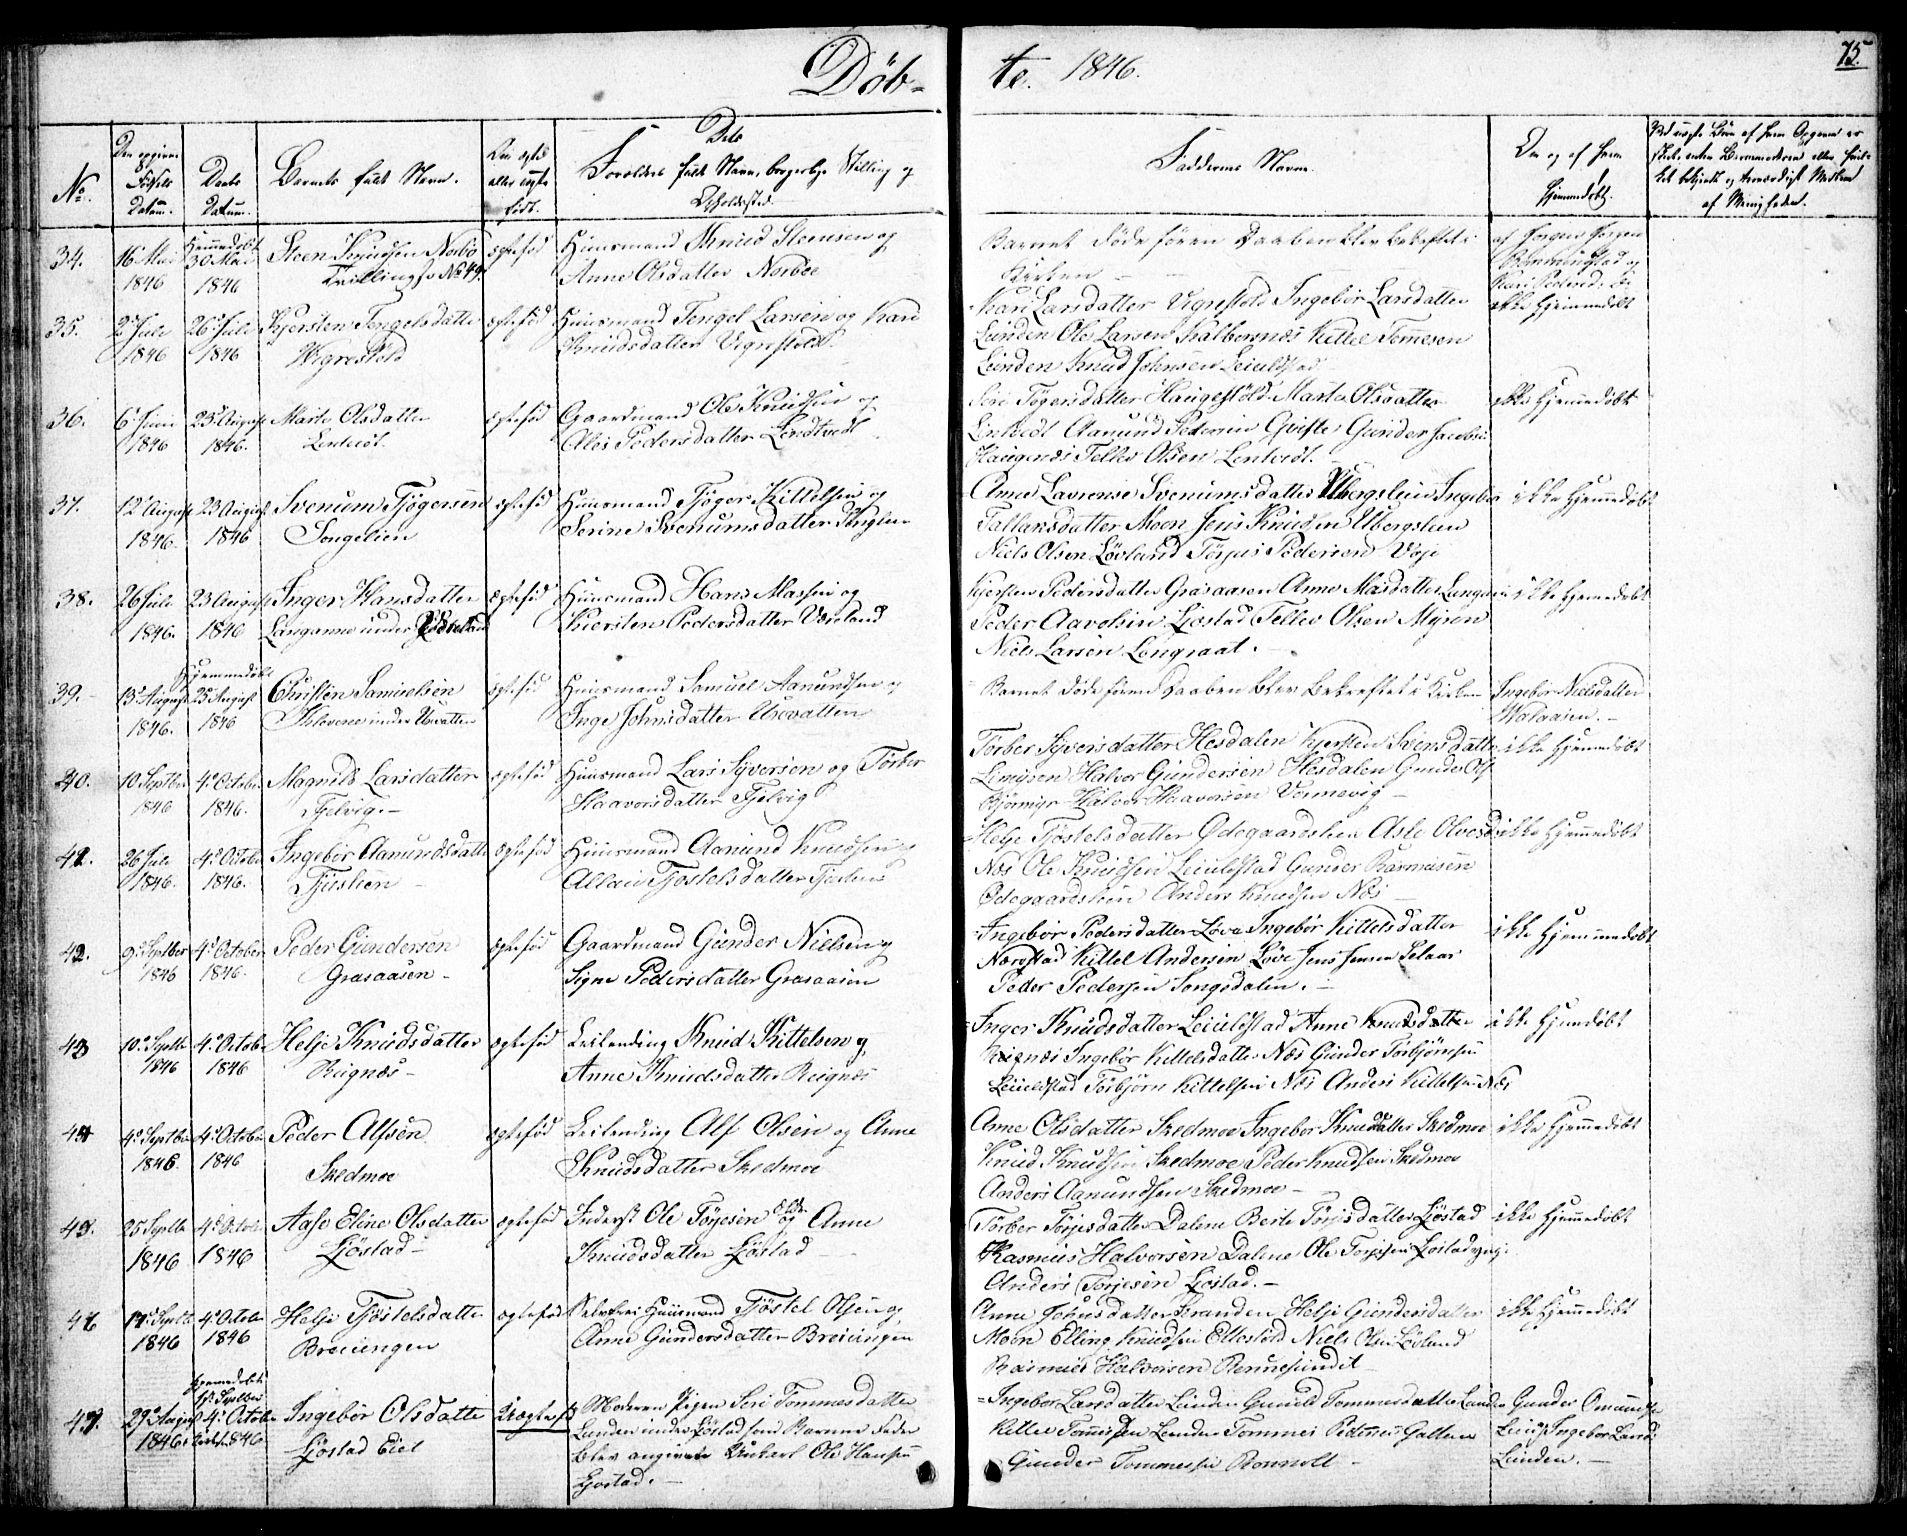 Døb-
te. 1846.
75.
No.
Daabs
Datum.
Barnets fulde Navn.
Foreldres fulde Navn, borgerlige Stilling og
Faddernes Navn.
34.
16 Mai
1846
Hjemmedøbt
30 Mai
1846
Steen Knudsen Norbø
Tvilling No 49.
ægtefød
Huusmand Knud Steensen og
Anne Olsdatter Norbøe
Barnet døde føren Daaben blev bekreftet i
Kirken
35.
2 Juli
1846
26 Juli
1846
Kjersten Tengelsdatter
Vigrestold
ægtefød
Huusmand Tengel Larsen og Kari
Knudsdatter Vigrestold
Kari Larsdatter Vigrestold Ingebor Larsdatter
Lunden Ole Larsen Kalbersnæs Kittel Tommesen
Lunden Knud Johnsen Leiulstad
ikke Hjemmedøbt
36.
6 Juni
1846
23 August
1846.
Marte Olsdatter
Lintvedt.
ægtefød
Gaardmand Ole Knudsen og
Pedersdatter Lindtvedt
Siri Tøgersdatter Haugestold Marte Olsdatter
Lintvedt Aanund Pedersen Gvifte Gunder Jacobsen
Haugenæs Tellev Olsen Lintvedt.
ikke Hjemmedøbt
37.
12 August
1846.
23 August
1846
Svenum Tjøgersen
Songelien
ægtefød
Huusmand Tjøger Kittelsen og
Serine Svenumsdatter Songlien
Anne Lavrense Svenumsdatter Ubergslien Ingebor
Tallaksdatter Moen Jens Knudsen Ubergslien
Niels Olsen Løvland Tørjus Pedersen Voje
ikke Hjemmedøbt
38.
26 Juli
1846.
23 August
1846
Inger Hansdatter
Langanne under
ægtefød
Huusmand Hans Massen og
Kiersten Pedersdatter
Kjersten Pedersdatter Grasaasen Anne Masdatter Langanne
Peder Aavolsen Ljøstad Tellev Olsen Myren
Niels Larsen Longraat.
ikke Hjemmedøbt
39.
13 August
1846.
Hjemmedøbt
25 August
1846
Christen Samuelsen
Kloveree under Usvatten
ægtefød
Huusmand Samuel Aanundsen og
Inge Johnsdatter Usvatten
Barnet døde føren Daaben blev bekreftet i Kirken
Ingebor Nielsdatter
40.
10 Septber
1846
4 October
1846.
Magnild Larsdatter
Tjelvig.
ægtefød
Huusmand Lars Syversen og Tørber
Haavorsdatter Tjelvig
Tørber Syversdatter Hesdalen Kjersten Svensdatter
Halvor Gundersen Hesdalen Gunder Ols
Halvor Haavorsen Vormevig
ikke Hjemmedøbt
41.
26 Juli
1846.
4 October
1846.
Ingebor Aanundsdatter
Tjuslien
ægtefød
Huusmand Aanund Knudsen og
Tjostelsdatter Tjuslien
Helje Tjøstelsdatter Ødegaardslien Aslo Olvesd.
Næs Ole Knudsen Leiulstad Gunder Rasmusen
Ødegaardslien Anders Knudsen Næs
ikke Hjemmedøbt
42.
9 Septber
1846
4 October
1846.
Peder Gundersen
Grasaasen
ægtefød
Gaardmand Gunder Nielsen og
Signe Pedersdatter Grasaasen
Ingebor Pedersdatter Løve Ingebor Kittelsdatter
Nærestad Kittel Andersen Løve Jens Jensen Selaas
Peder Pedersen Songedalen.
ikke Hjemmedøbt
43
10 Septbr
1846
4 October
1846
Helje Knudsdatter
Reignæs
ægtefød
Leilending Knud Kittelsen og
Anne Knudsdatter Reignæs
Inger Knudsdatter Leiulstad Anne Knutsdatter
Reignæs Ingebør Kittelsdatter Næs Gunder Torbjørnsen
Leiulstad Torbjørn Kittelsen Næs Anders Kittelsen Næs
ikke Hjemdøbt
44
4 Septber
1846.
4 October
1846
Peder Alfsen
Skedmoe
ægtefød
Leilending Alf Olsen og Anne
Knudsdatter Skedmoe
Anne Olsdatter Skedmoe Ingebor Knudsdatter Skedmoe
Knud Knudsen Skedmoe Peder Knudsen Skedmoe
Anders Aanundsen Skedmoe
ikke Hjemmedøbt
45.
25 Septbr
1846
4 Octobr
1846
Aase Eline Olsdatter
Ljøstad
ægtefød
Inderst Ole Tørjesen og Anne
Knudsdatter Ljøstad
Tørber Tørjesdatter Dalene Berte Tørjesdatter Ljøstad
Rasmus Halvorsen Dalene Ole Torjesen Ljøstad yng.
Anders Torjesen Ljøstad.
ikke Hjemmedøbt
46
14 Septbr
1846
4 October
1846
Helje Tjøstelsdatter
Breiungen
ægtefød
Selveier Huusmand Tjøstel Olsen og
Anne Gundersdatter Breiungen
Anne Jensdatter Branden Helje Gundersdatter
Moen Elling Knudsen Ettestold Niels Olsen Løvland
Rasmus Halvorsen Rennesundet
ikke Hjemmedøbt
47.
29 August
1846
Hjemmedøbt
4 October
1846
Ingebor Olsdatter
Ljøstad Eiet
Uægtefød
Moderen Pigen Siri Tommesdatter
Lunden under Ljøstad som Barnets Fader
blev angivet Unkarl Ole Hansen
Ljøstad.
Ingebor Larsdatter Lunden Gunild Tommesdatter Lunden
Kittel Tommesen Lunden Tommes Pedersen Galten
Gunder Tommesen Bonvolt
Gunder Omundsen
Ingebor Larsd.
Lunden.